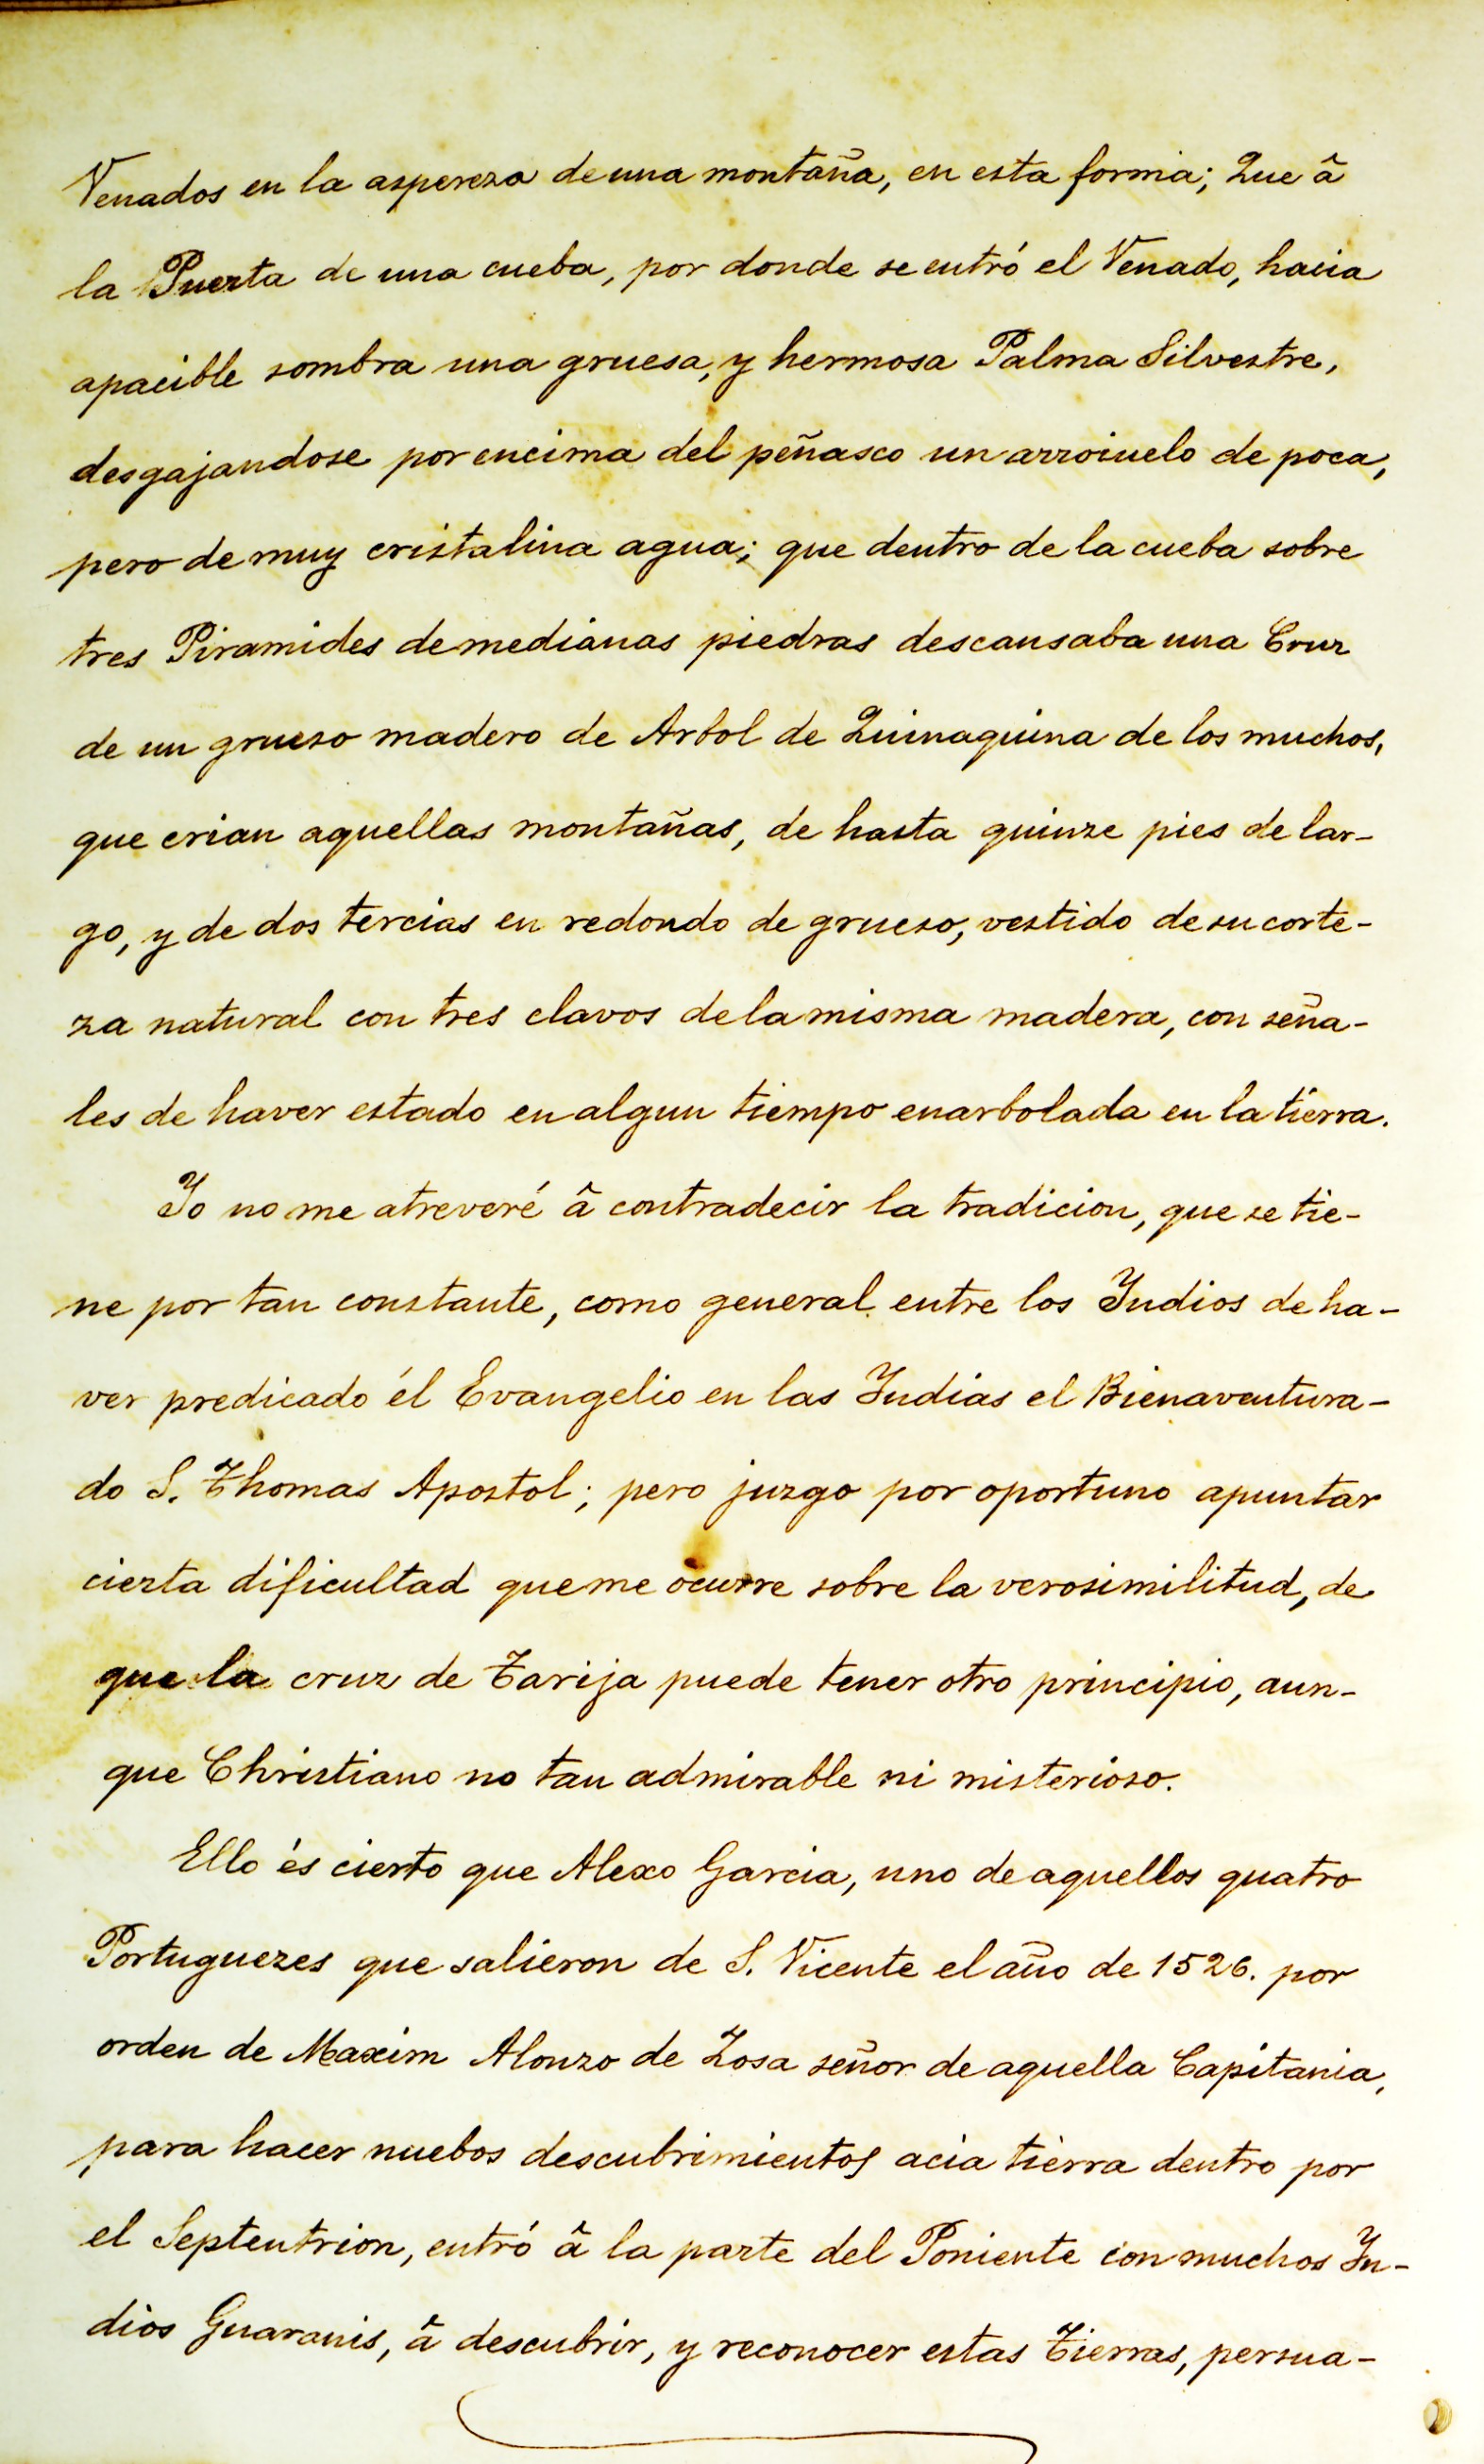 Venados en la aspereza de una montaña, en esta forma; Que â
la Puerta de una cueba, por donde se entró el Venado, hacia
apacible sombra una gruesa, y hermosa Palma Silvestre,
desgajandose por encima del peñasco un arroiuelo de poca,
pero de muy cristalina agua; que dentro de la cueba sobre
tres Piramides de medianas piedras descansaba una Cruz
de un grueso madero de Arbol de Quinaquina de los muchos,
que crian aquellas montañas, de hasta quinze pies de lar-
go, y de dos tercias en redondo de grueso, vestido de su corte-
za natural con tres clavos de la misma madera, con seña-
les de haver estado en algun tiempo enarbolada en la tierra.
Yo no me atreveré â contradecir la tradicion, que se tie-
ne por tan constante, como general entre los Yndios de ha-
ver predicado él Evangelio en las Yndias el Bienaventura-
do S. Thomas Apostol; pero juzgo por oportuno apuntar
cierta dificultad que me ocurre sobre la verosimilitud, de
que la cruz de Tarija puede tener otro principio, aun-
que Christiano no tan admirable ni misterioso.
Ello és cierto que Alexo Garcia, uno de aquellos quatro
Portuguezes que salieron de S. Vicente el año de 1526. por
orden de Maxim Alonzo de Zosa señor de aquella Capitania,
para hacer nuebos descubrimientos acia tierra dentro por
el Septentrion, entró â la parte del Poniente con muchos Yn-
dios Guaranis, â descubrir, y reconocer estas Tierras, persua-